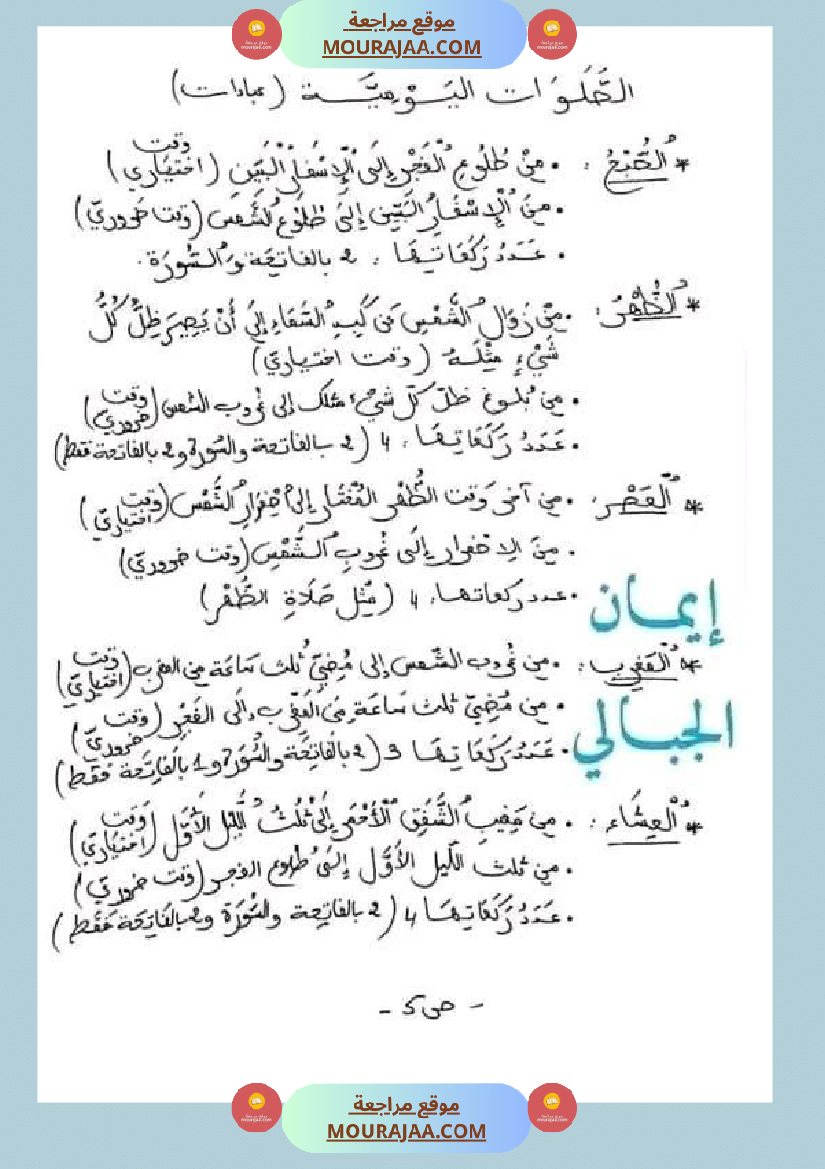 موقع مراجعة
MOURAJAA.COM
الصَّلَوَات اليَوْمِيَّة (عبادات)
* الصُّبْحُ : • مِنْ طُلُوعِ الْفَجْرِ إِلَى الْإِسْفَارِ الْبَيِّنِ (وقت اختياري)
• مِنَ الْإِسْفَارِ البَيِّنِ إِلَى طُلُوعِ الشَّمْسِ (وقت ضروريّ)
• عَدَدُ رَكَعَاتِهَا : 2 بالفاتِحَة وَالسُّورَة.
* الظُّهْرُ : • مِنْ زَوَالِ الشَّمْسِ عَنْ كَبِدِ السَّمَاءِ إِلَى أَنْ يَصِيرَ ظِلُّ كُلُّ
شَيْءٍ مِثْلَهُ (وقت اختياريّ)
• مِنْ بُلُوغ ظلّ كلّ شيْء مثلك إلى غروب الشمس (وقت ضروريّ)
• عَدَدُ رَكَعَاتِهَا : 4 (2 بالفاتحة والسّورة و2 بالفاتحة فقط)
* الْعَصْر : • مِنْ آخر وَقت الظُّهْر إِلَى اصْفِرَارِ الشَّمْس (وقت اختياريّ)
• مِنَ الاصفرار إِلَى غُرُوبِ الشَّمْسِ (وقت ضروريّ)
• عدد ركعاتها : 4 (مِثْل صَلَاةِ الظُّهْر)
إيمان
* الْمَغْرِب : • من غُروب الشّمس إلى مُضِيّ ثُلث سَاعَة مِن المغرب (وقت اختياريّ)
• مِن مُضِيّ ثلث سَاعَة مِنَ المَغْرِب إِلَى الفَجْر (وقت ضروريّ)
الجبالي
• عَدَدُ رَكَعَاتِهَا 3 (2 بالفَاتِحَة والسُّورَة و1 بالْفَاتِحَة فَقَط)
* الْعِشَاء : • مِن مَغِيبِ الشَّفَقِ الْأَحْمَرِ إِلَى ثُلُثُ اللَّيْل الأَوَّل (وَقت اختياريّ)
• مِن ثلث اللّيل الأَوَّل إِلَى طلوع الفجر (وقت ضروريّ)
• عَدَدُ رَكَعَاتِهَا 4 (2 بالفاتِحة والسُّورَة و2 بالفَاتِحَة فَقَط)
- ص 5 -
موقع مراجعة
MOURAJAA.COM